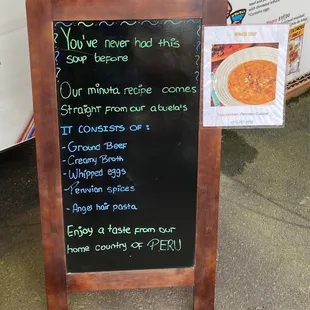 You've never had this
soup before
Our minuta recipe comes
Straight from our abuela's
IT CONSISTS OF:
- Ground Beef
- Creamy Broth
- Whipped eggs
- Peruvian spices
- Angel hair pasta
Enjoy a taste from our
home country of PERU
MINUTA SOUP